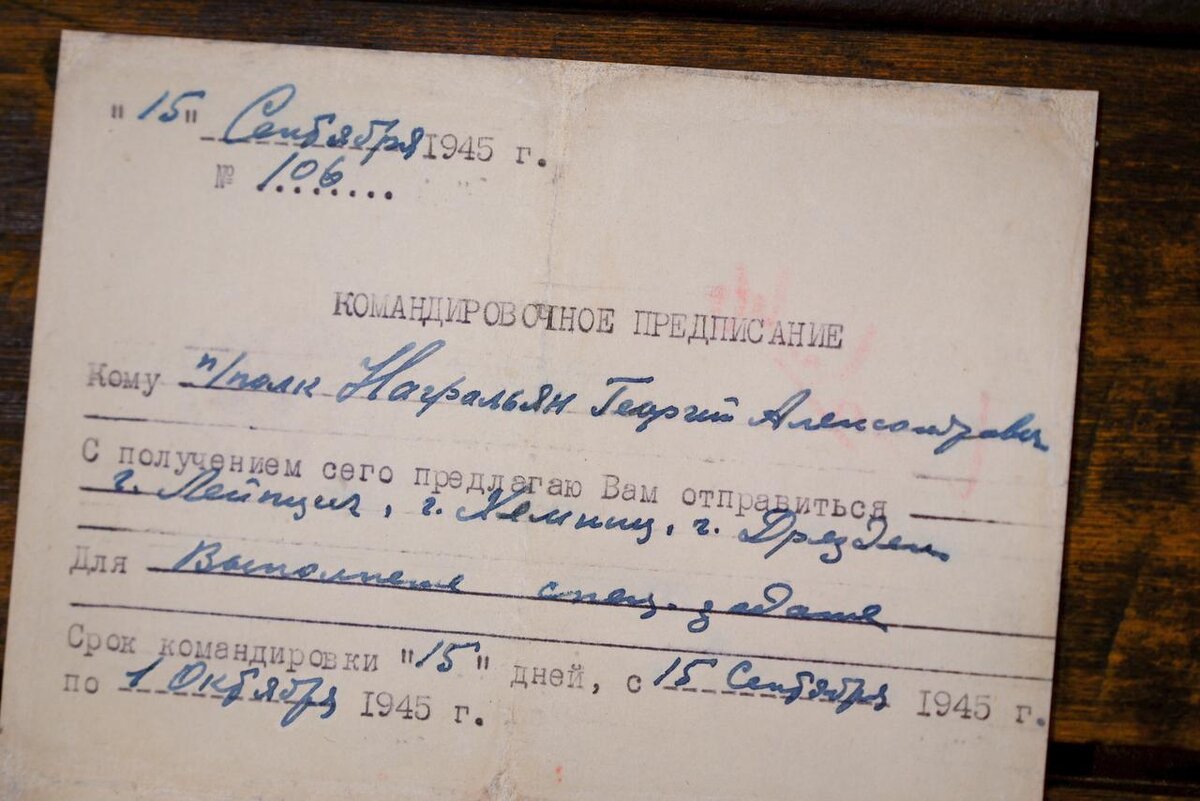 "15" Сентября 1945 г.
№ 106
КОМАНДИРОВОЧНОЕ ПРЕДПИСАНИЕ
Кому п/полк Георгий Александрович
С получением сего предлагаю Вам отправиться
г. Лейпциг, г. Хемниц, г. Дрезден
Для Выполнения спец. задания
Срок командировки "15" дней, с 15 Сентября 1945 г.
по 1 Октября 1945 г.